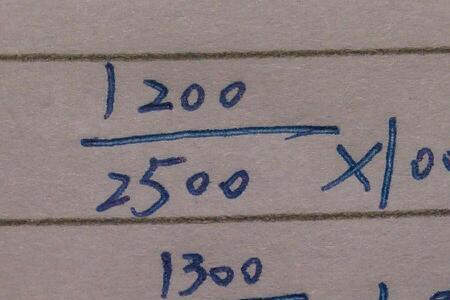 1200
2500 ×100
1300